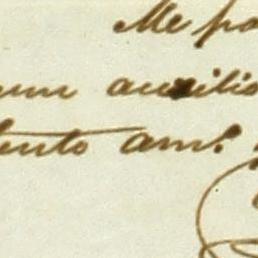 Me pa
um auxilio
ento am.º